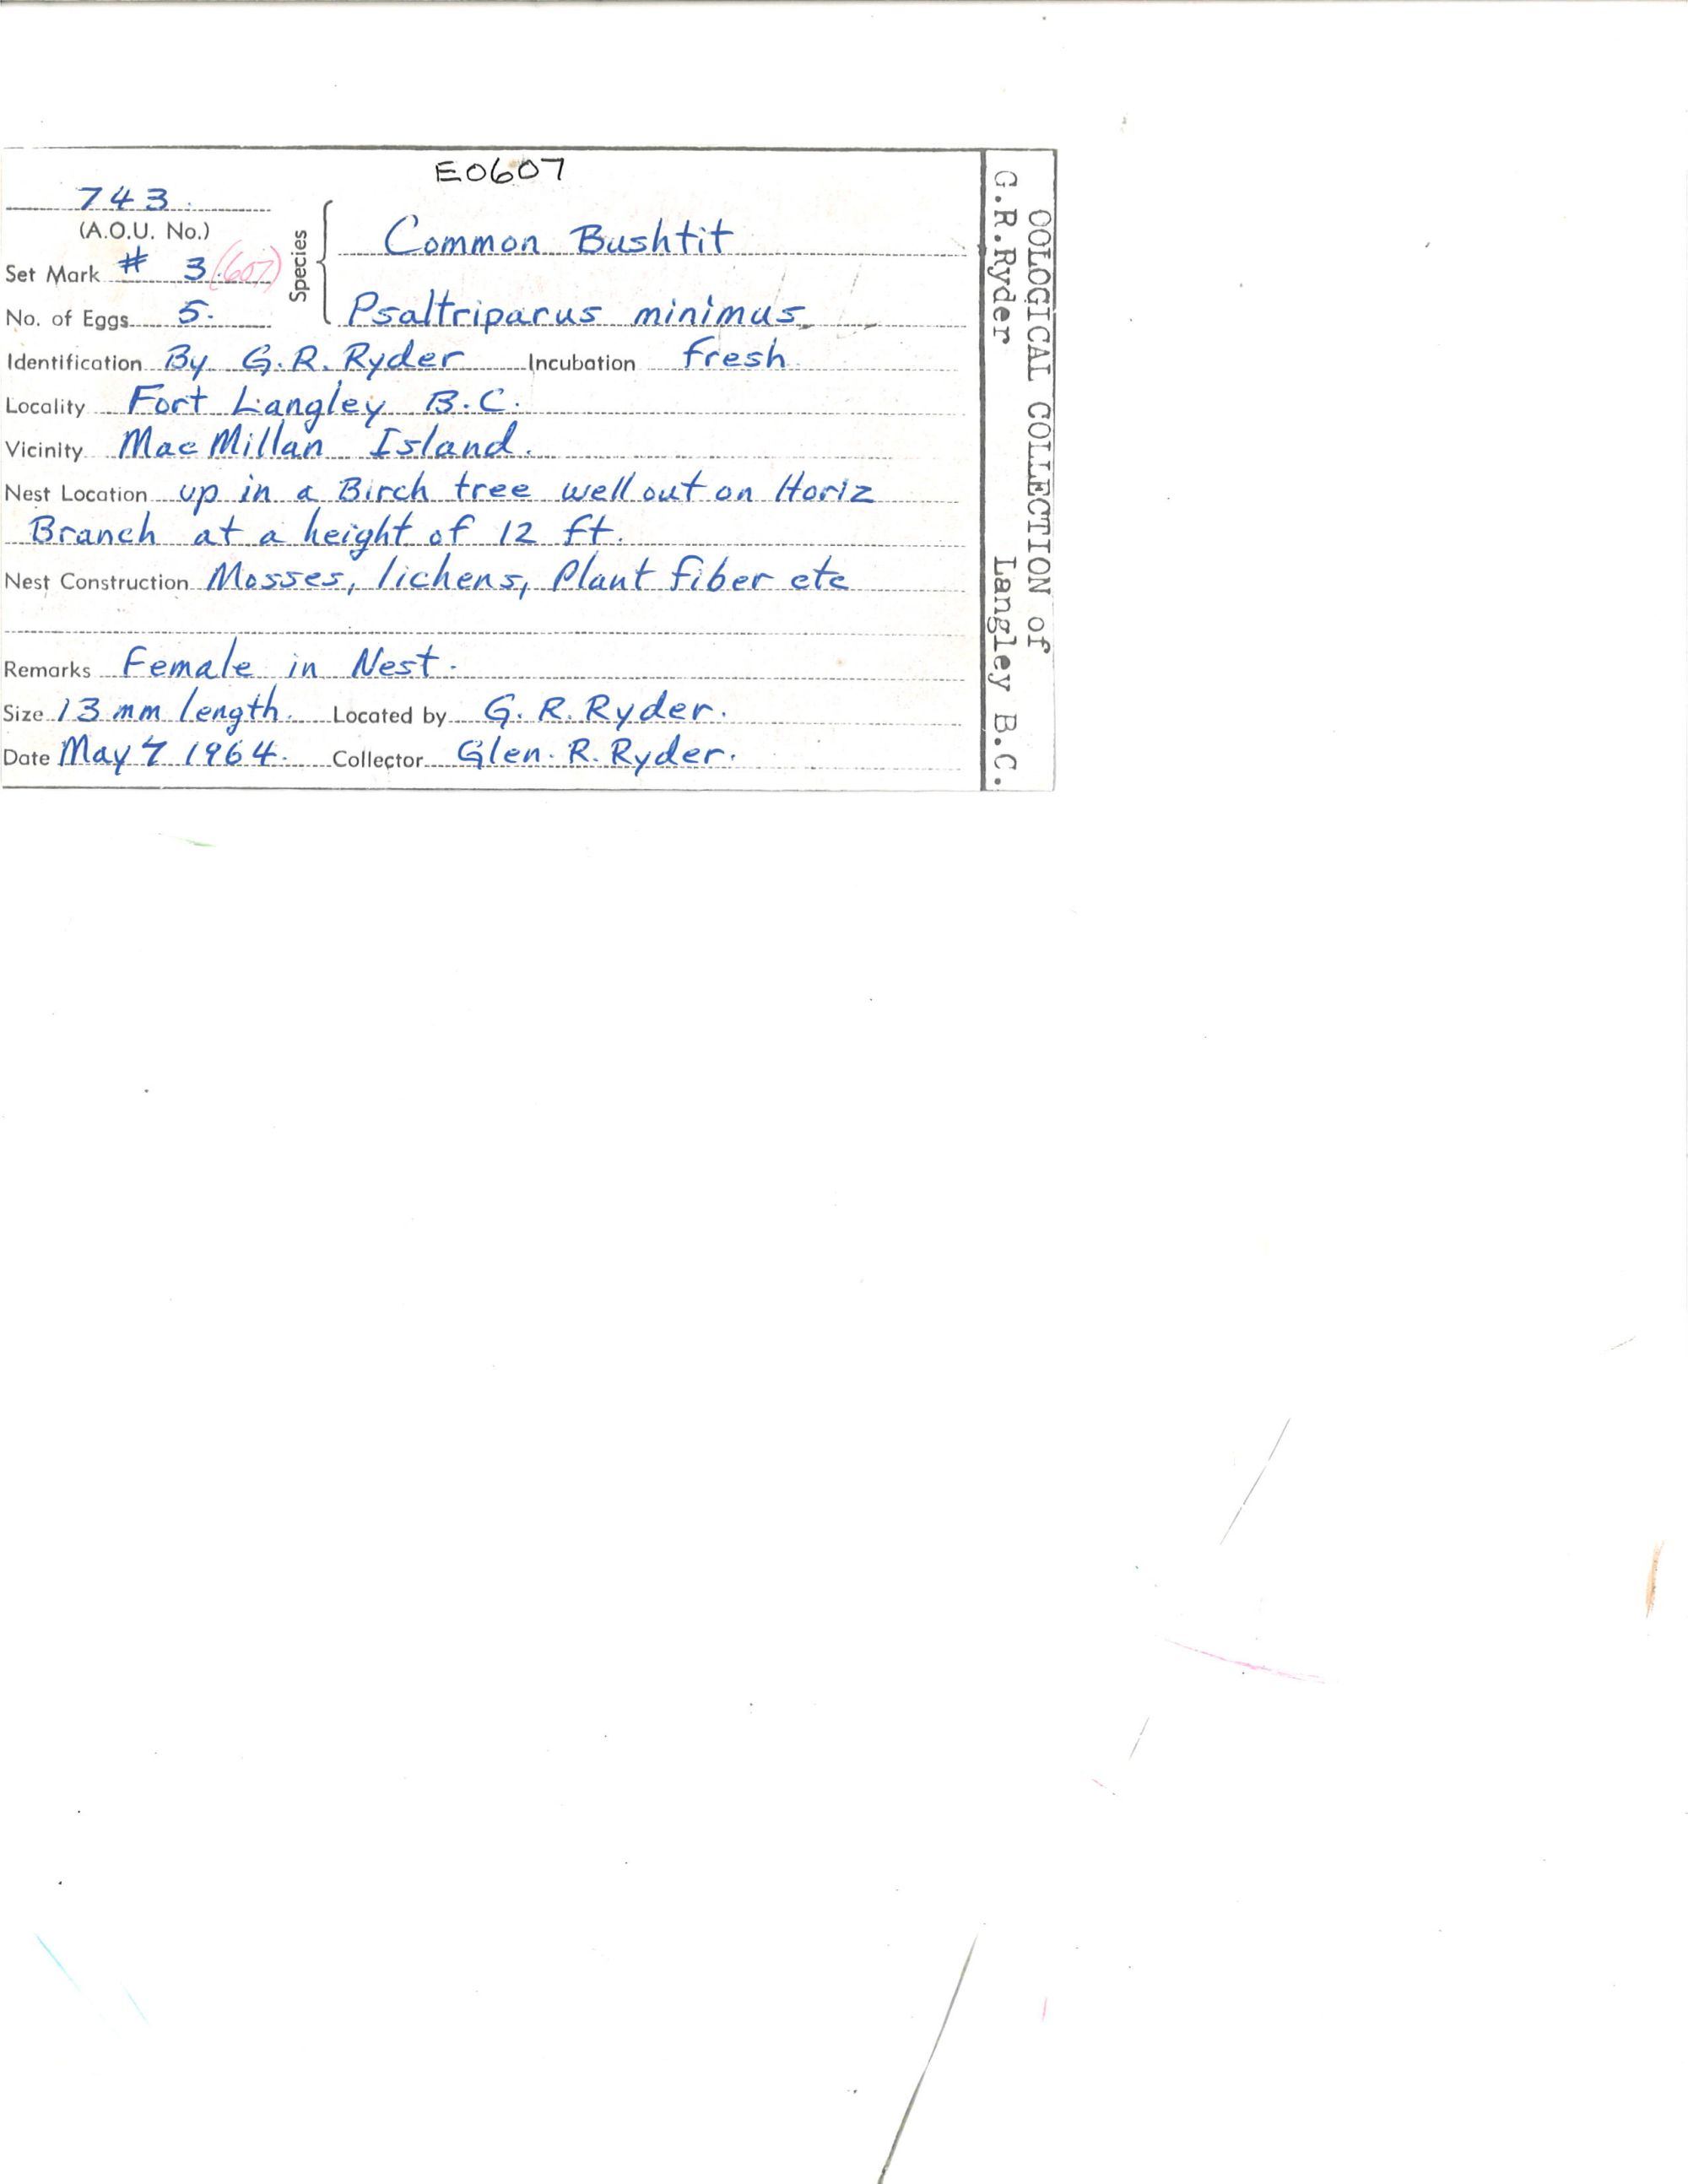 E0607
743.
(A.O.U. No.)
Set Mark # 3. (607)
No. of Eggs 5.
Species
Common Bushtit
Psaltriparus minimus
Identification By G.R. Ryder Incubation fresh
Locality Fort Langley B.C.
Vicinity MacMillan Island.
Nest Location up in a Birch tree well out on Horiz
Branch at a height of 12 ft.
Nest Construction Mosses, lichens, Plant fiber etc
Remarks Female in Nest.
Size 13 mm length. Located by G. R. Ryder.
Date May 7 1964. Collector Glen. R. Ryder.
OOLOGICAL COLLECTION of
G.R.Ryder Langley B.C.